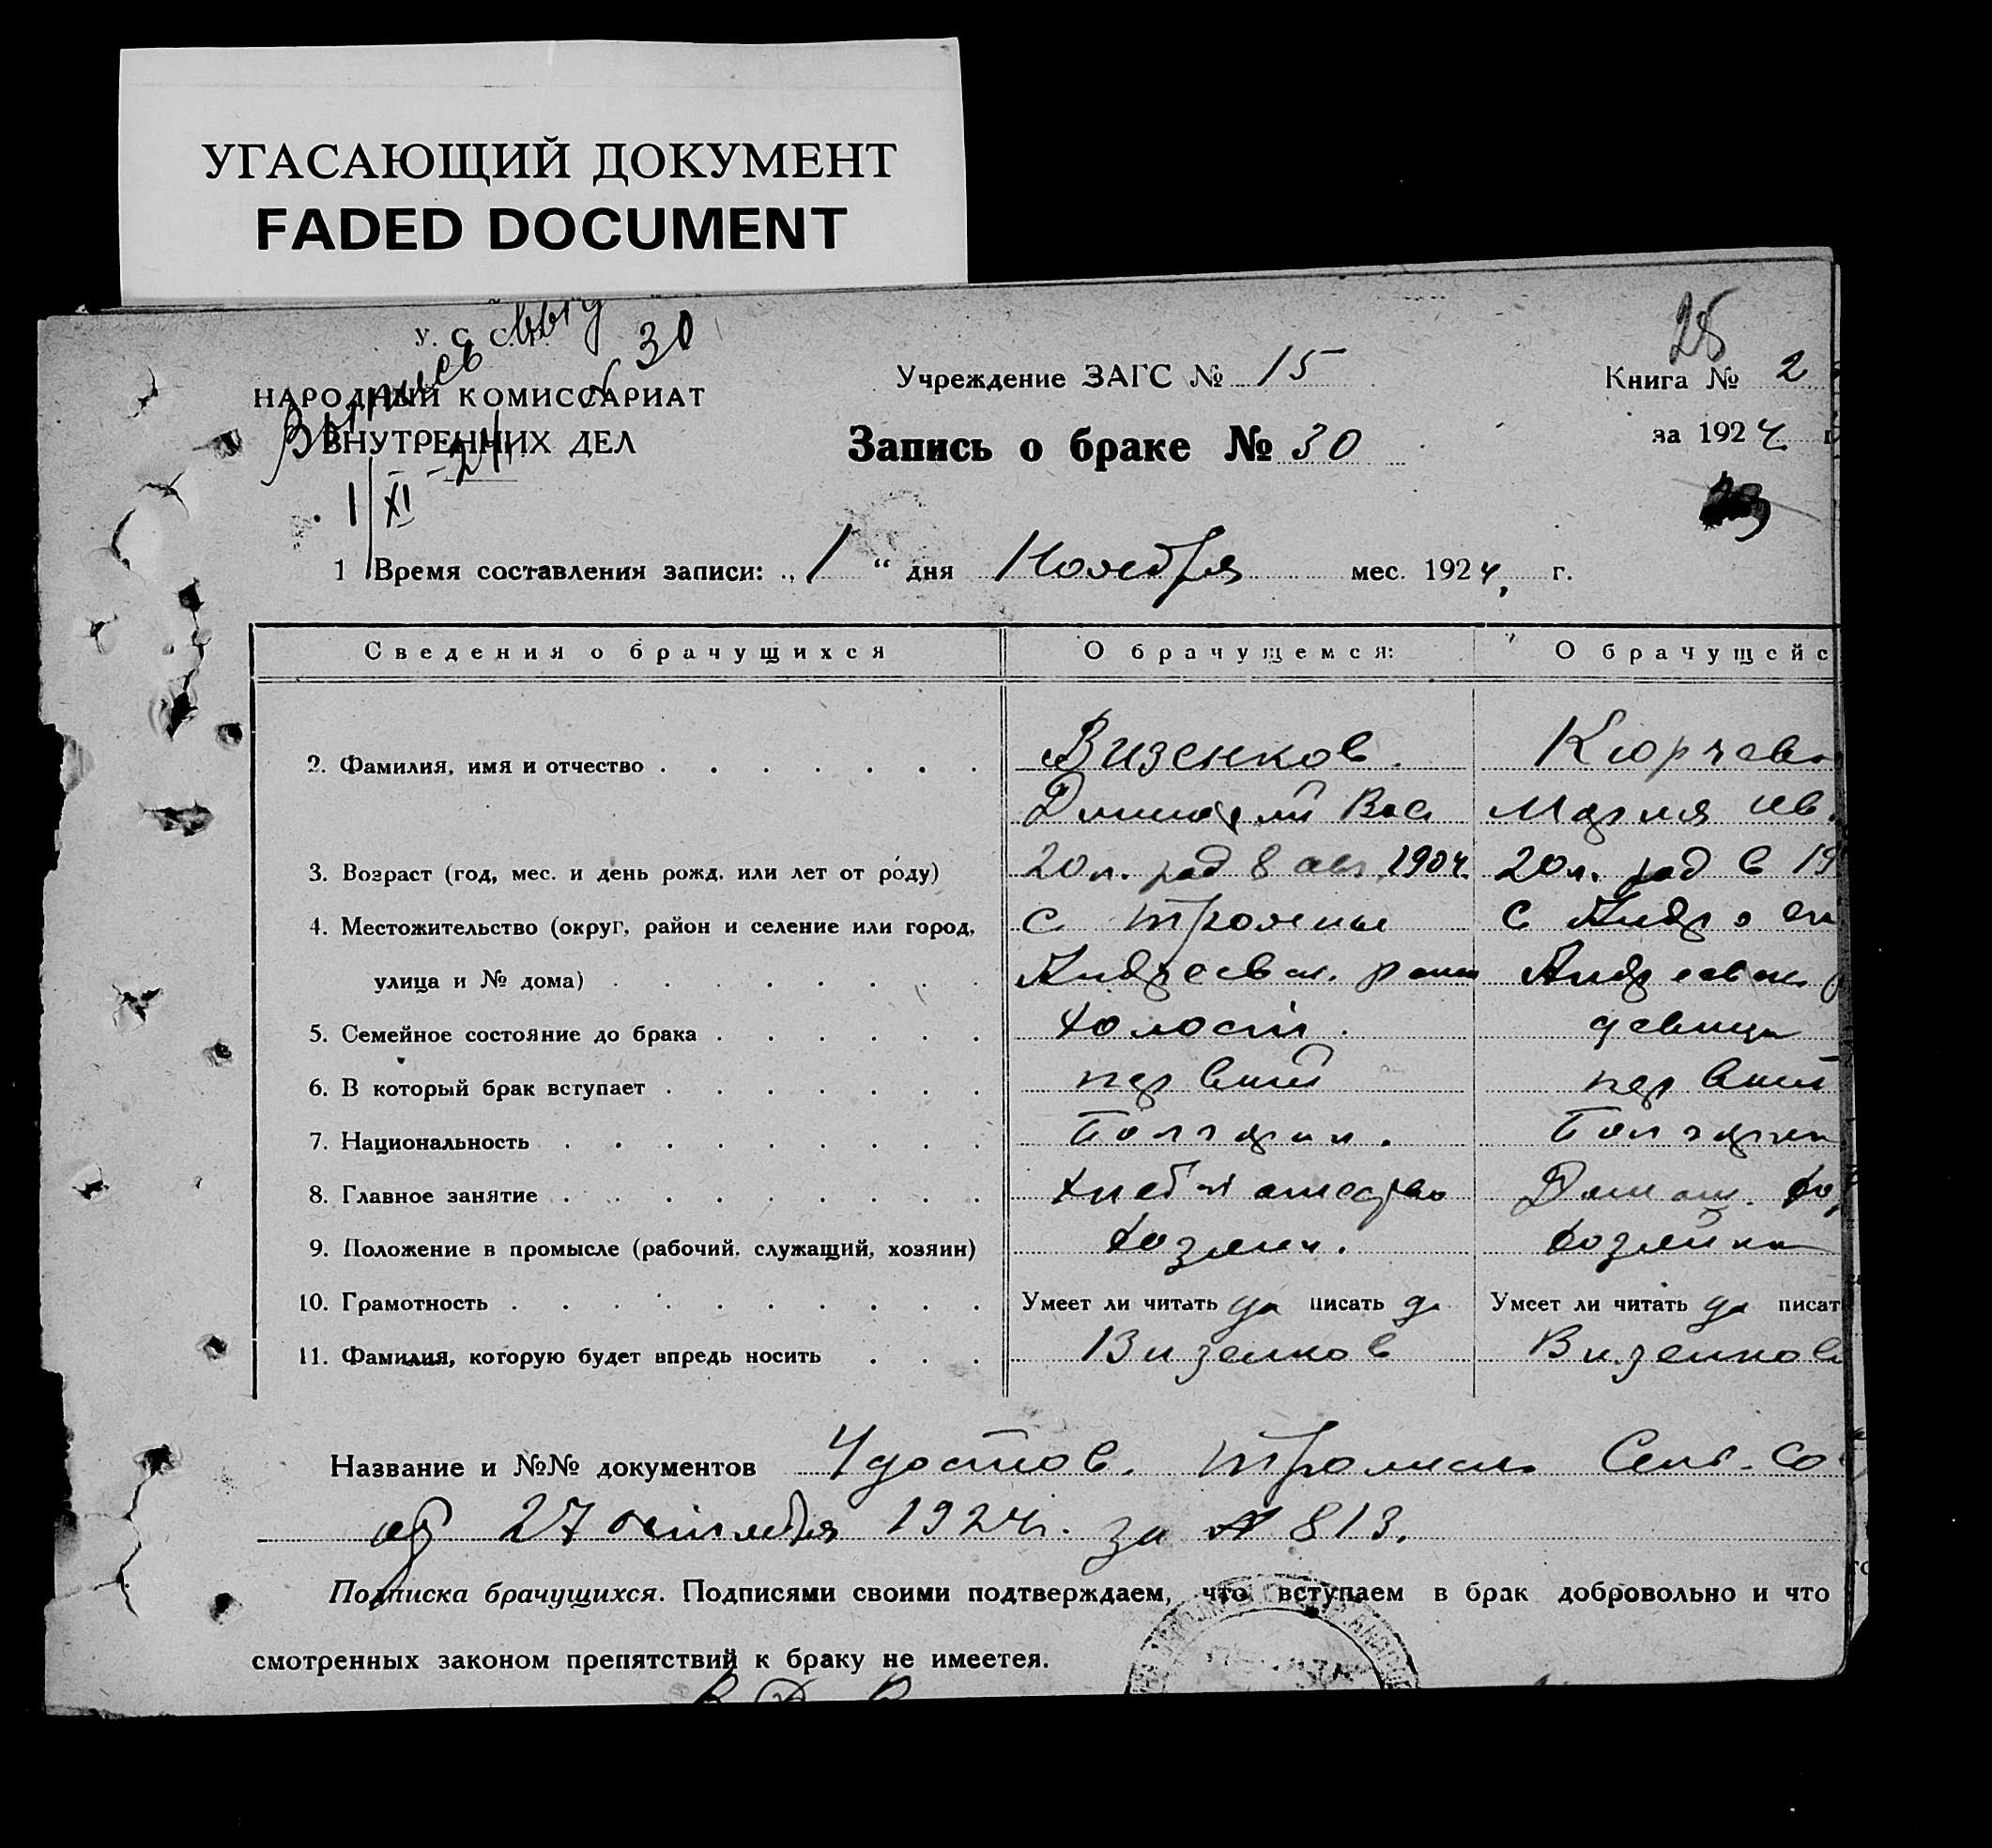 УГАСАЮЩИЙ ДОКУМЕНТ
FADED DOCUMENT
У. С. С.
№ 30
25
НАРОДНЫЙ КОМИССАРИАТ
ВНУТРЕННИХ ДЕЛ
1/XI-24
Учреждение ЗАГС № 15
Книга № 2
Запись о браке № 30
за 1924 г
1 Время составления записи: „1“ дня Ноября мес. 1924, г.
Сведения о брачущихся О брачущемся: О брачущейс
2. Фамилия, имя и отчество Визенков. Кюрчев
Димитрий Вас Мария Ив.
3. Возраст (год, мес. и день рожд. или лет от роду) 20 л. род 8 авг. 1904. 20 л. род в 19
4. Местожительство (округ, район и селение или город, с Трояны с Андр
улица и № дома) Андреевск. район Андреевск. р
5. Семейное состояние до брака холост. девица
6. В который брак вступает первый первый
7. Национальность Болгарин. Болгарк
8. Главное занятие хлебопашество Домаш. хоз
9. Положение в промысле (рабочий, служащий, хозяин) хозяин. хозяйка
10. Грамотность Умеет ли читать да писать да Умеет ли читать да писат
11. Фамилия, которую будет впредь носить Визенков Визенков
Название и №№ документов Удостов. Троянск. Сель-Со
от 27 октября 1924 г. за № 813.
Подписка брачущихся. Подписями своими подтверждаем, что вступаем в брак добровольно и что
смотренных законом препятствий к браку не имеетея.